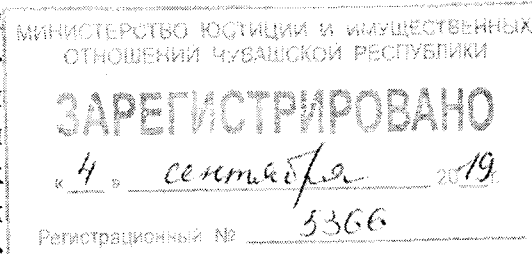 МИНИСТЕРСТВО ЮСТИЦИИ И ИМУЩЕСТВЕННЫХ
ОТНОШЕНИЙ ЧУВАШСКОЙ РЕСПУБЛИКИ
ЗАРЕГИСТРИРОВАНО
« 4 » сентября 2019 г.
Регистрационный № 5366